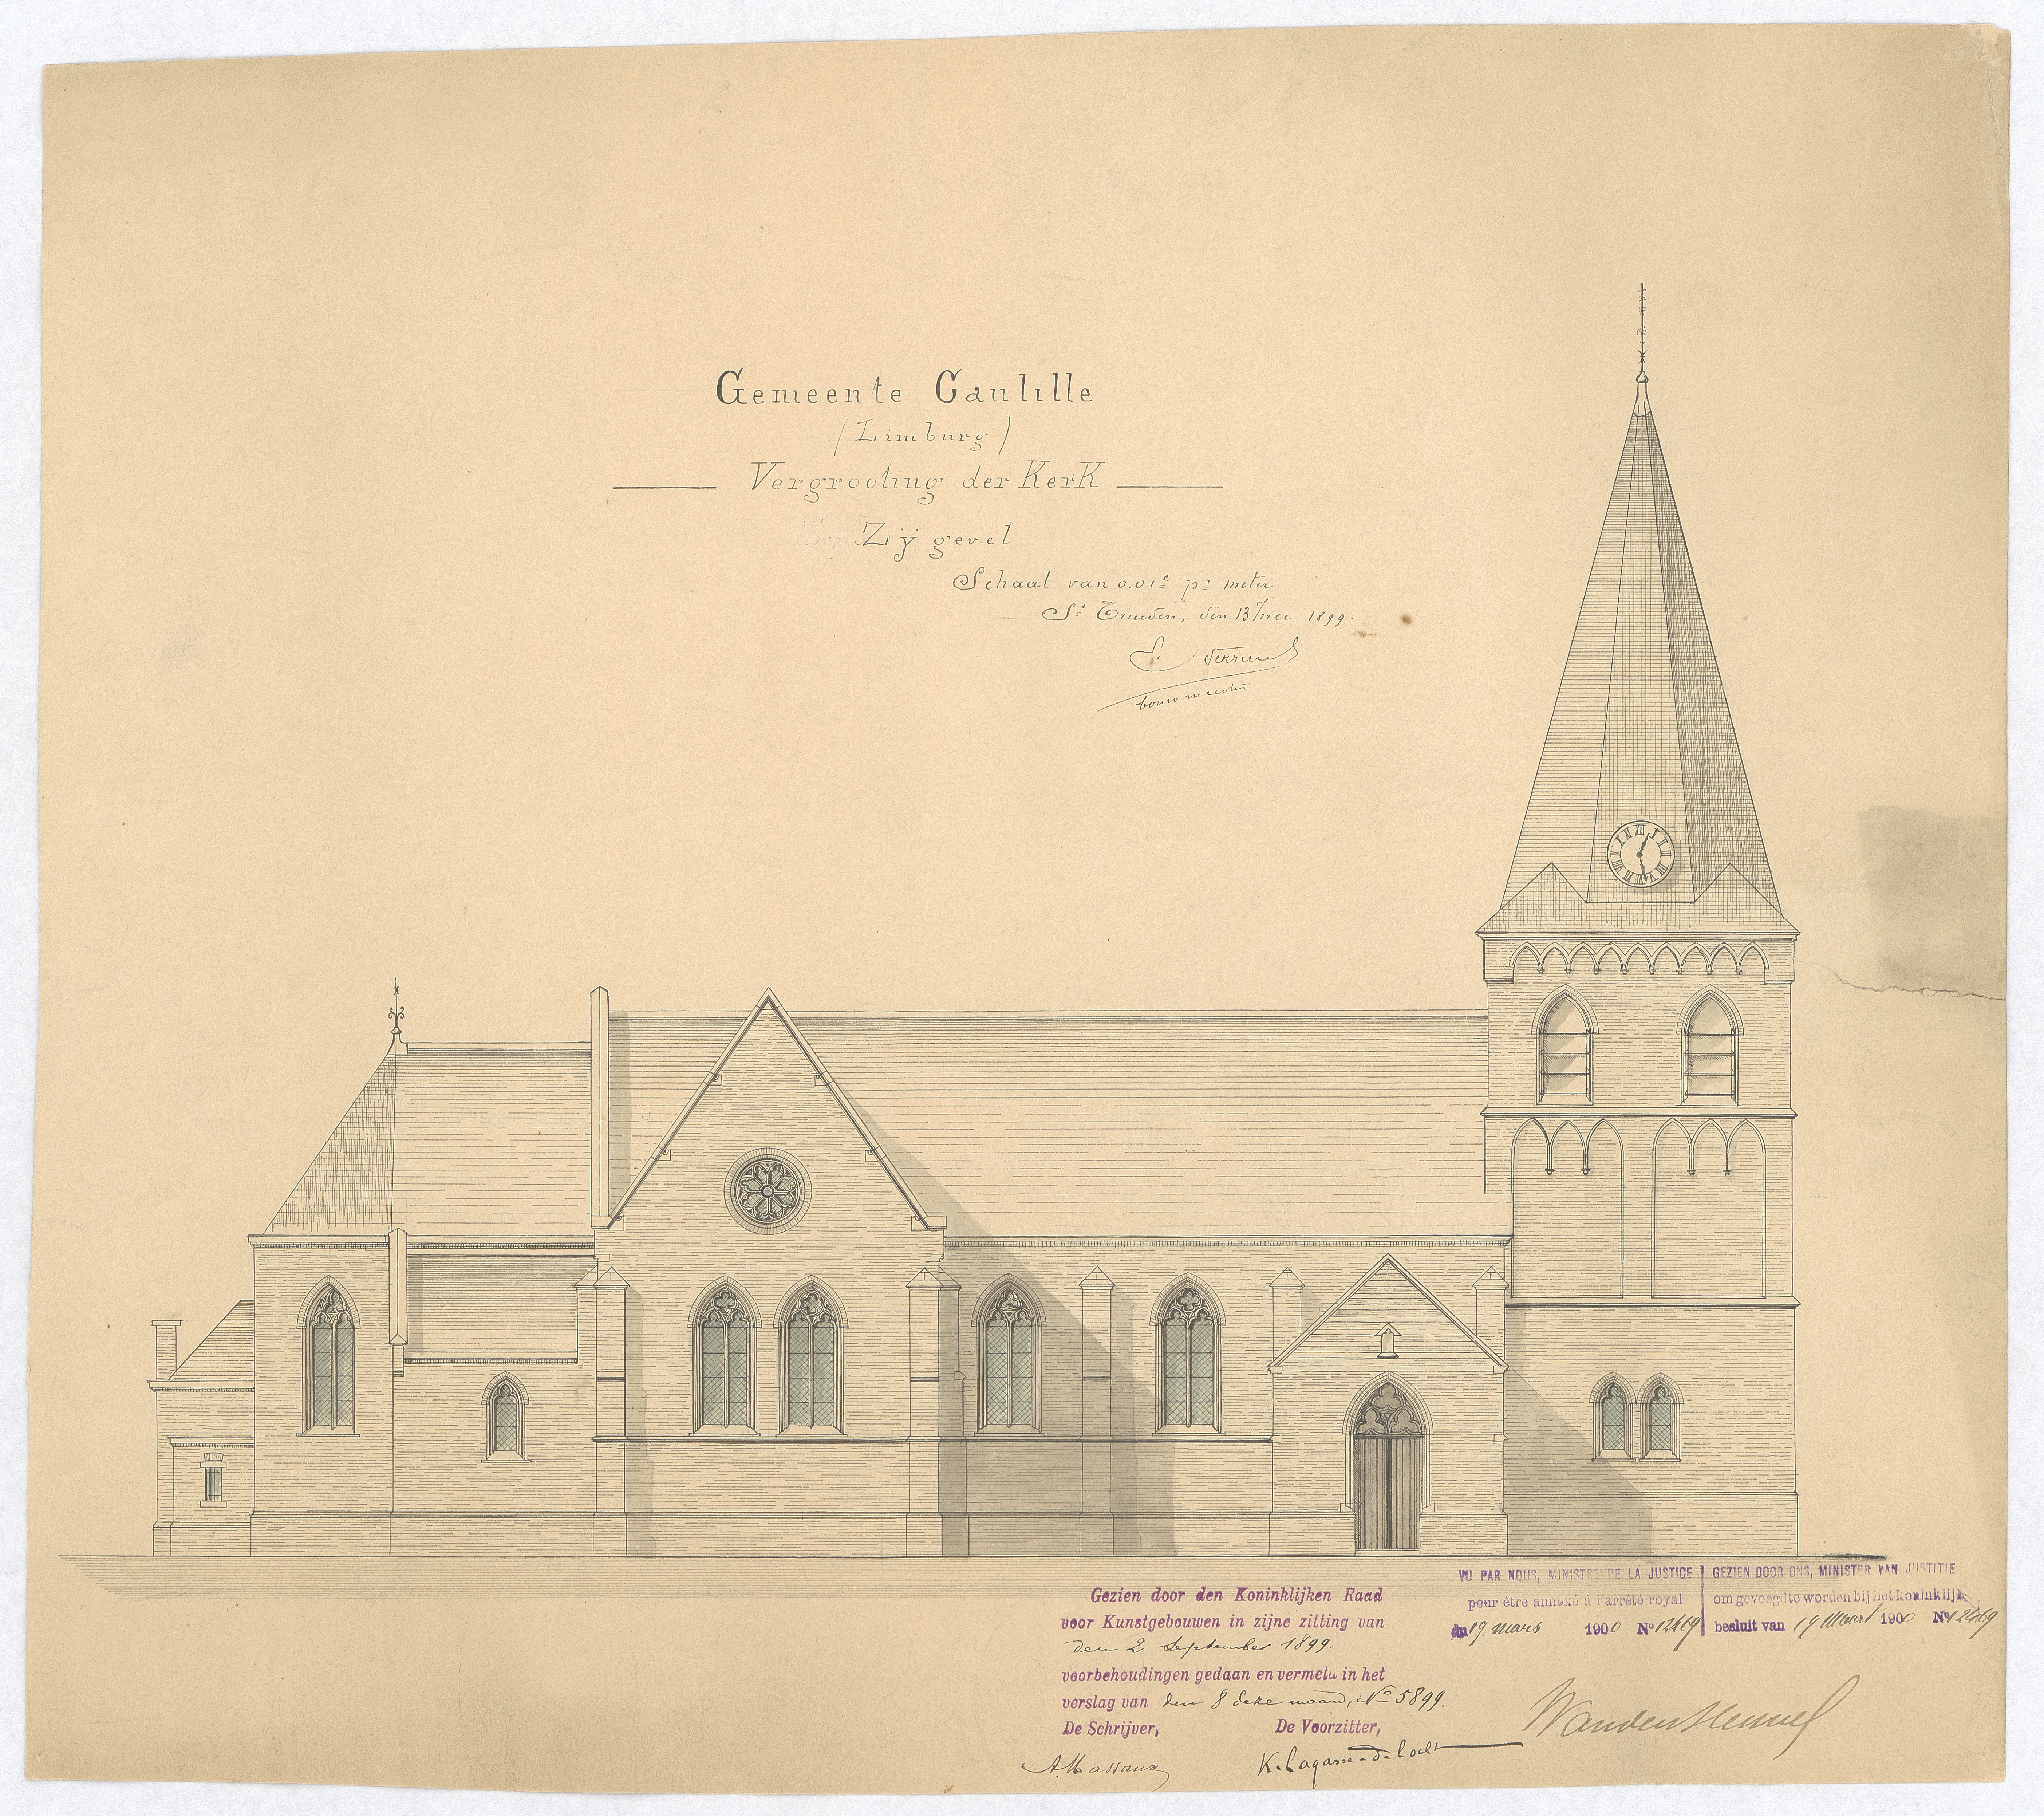 Gemeente Caulille
(Limburg)
Vergrooting der Kerk
Zÿ gevel
Schaal van 0.01c pr meter
St Truiden, den 13 mei 1899.
bouwmeester
VU PAR NOUS, MINISTRE DE LA JUSTICE
pour être annexé à l'arrêté royal
du 19 mars 1900 No 12469
GEZIEN DOOR ONS, MINISTER VAN JUSTITIE
om gevoegd te worden bij het koninklijk
besluit van 19 Maart 1900 No 12469
Gezien door den Koninklijken Raad
voor Kunstgebouwen in zijne zitting van
den 2 September 1899.
voorbehoudingen gedaan en vermeld in het
verslag van den 8 deze maand, No 5899.
De Schrijver, De Voorzitter,
A. Massaux K. Lagasse-de Locht